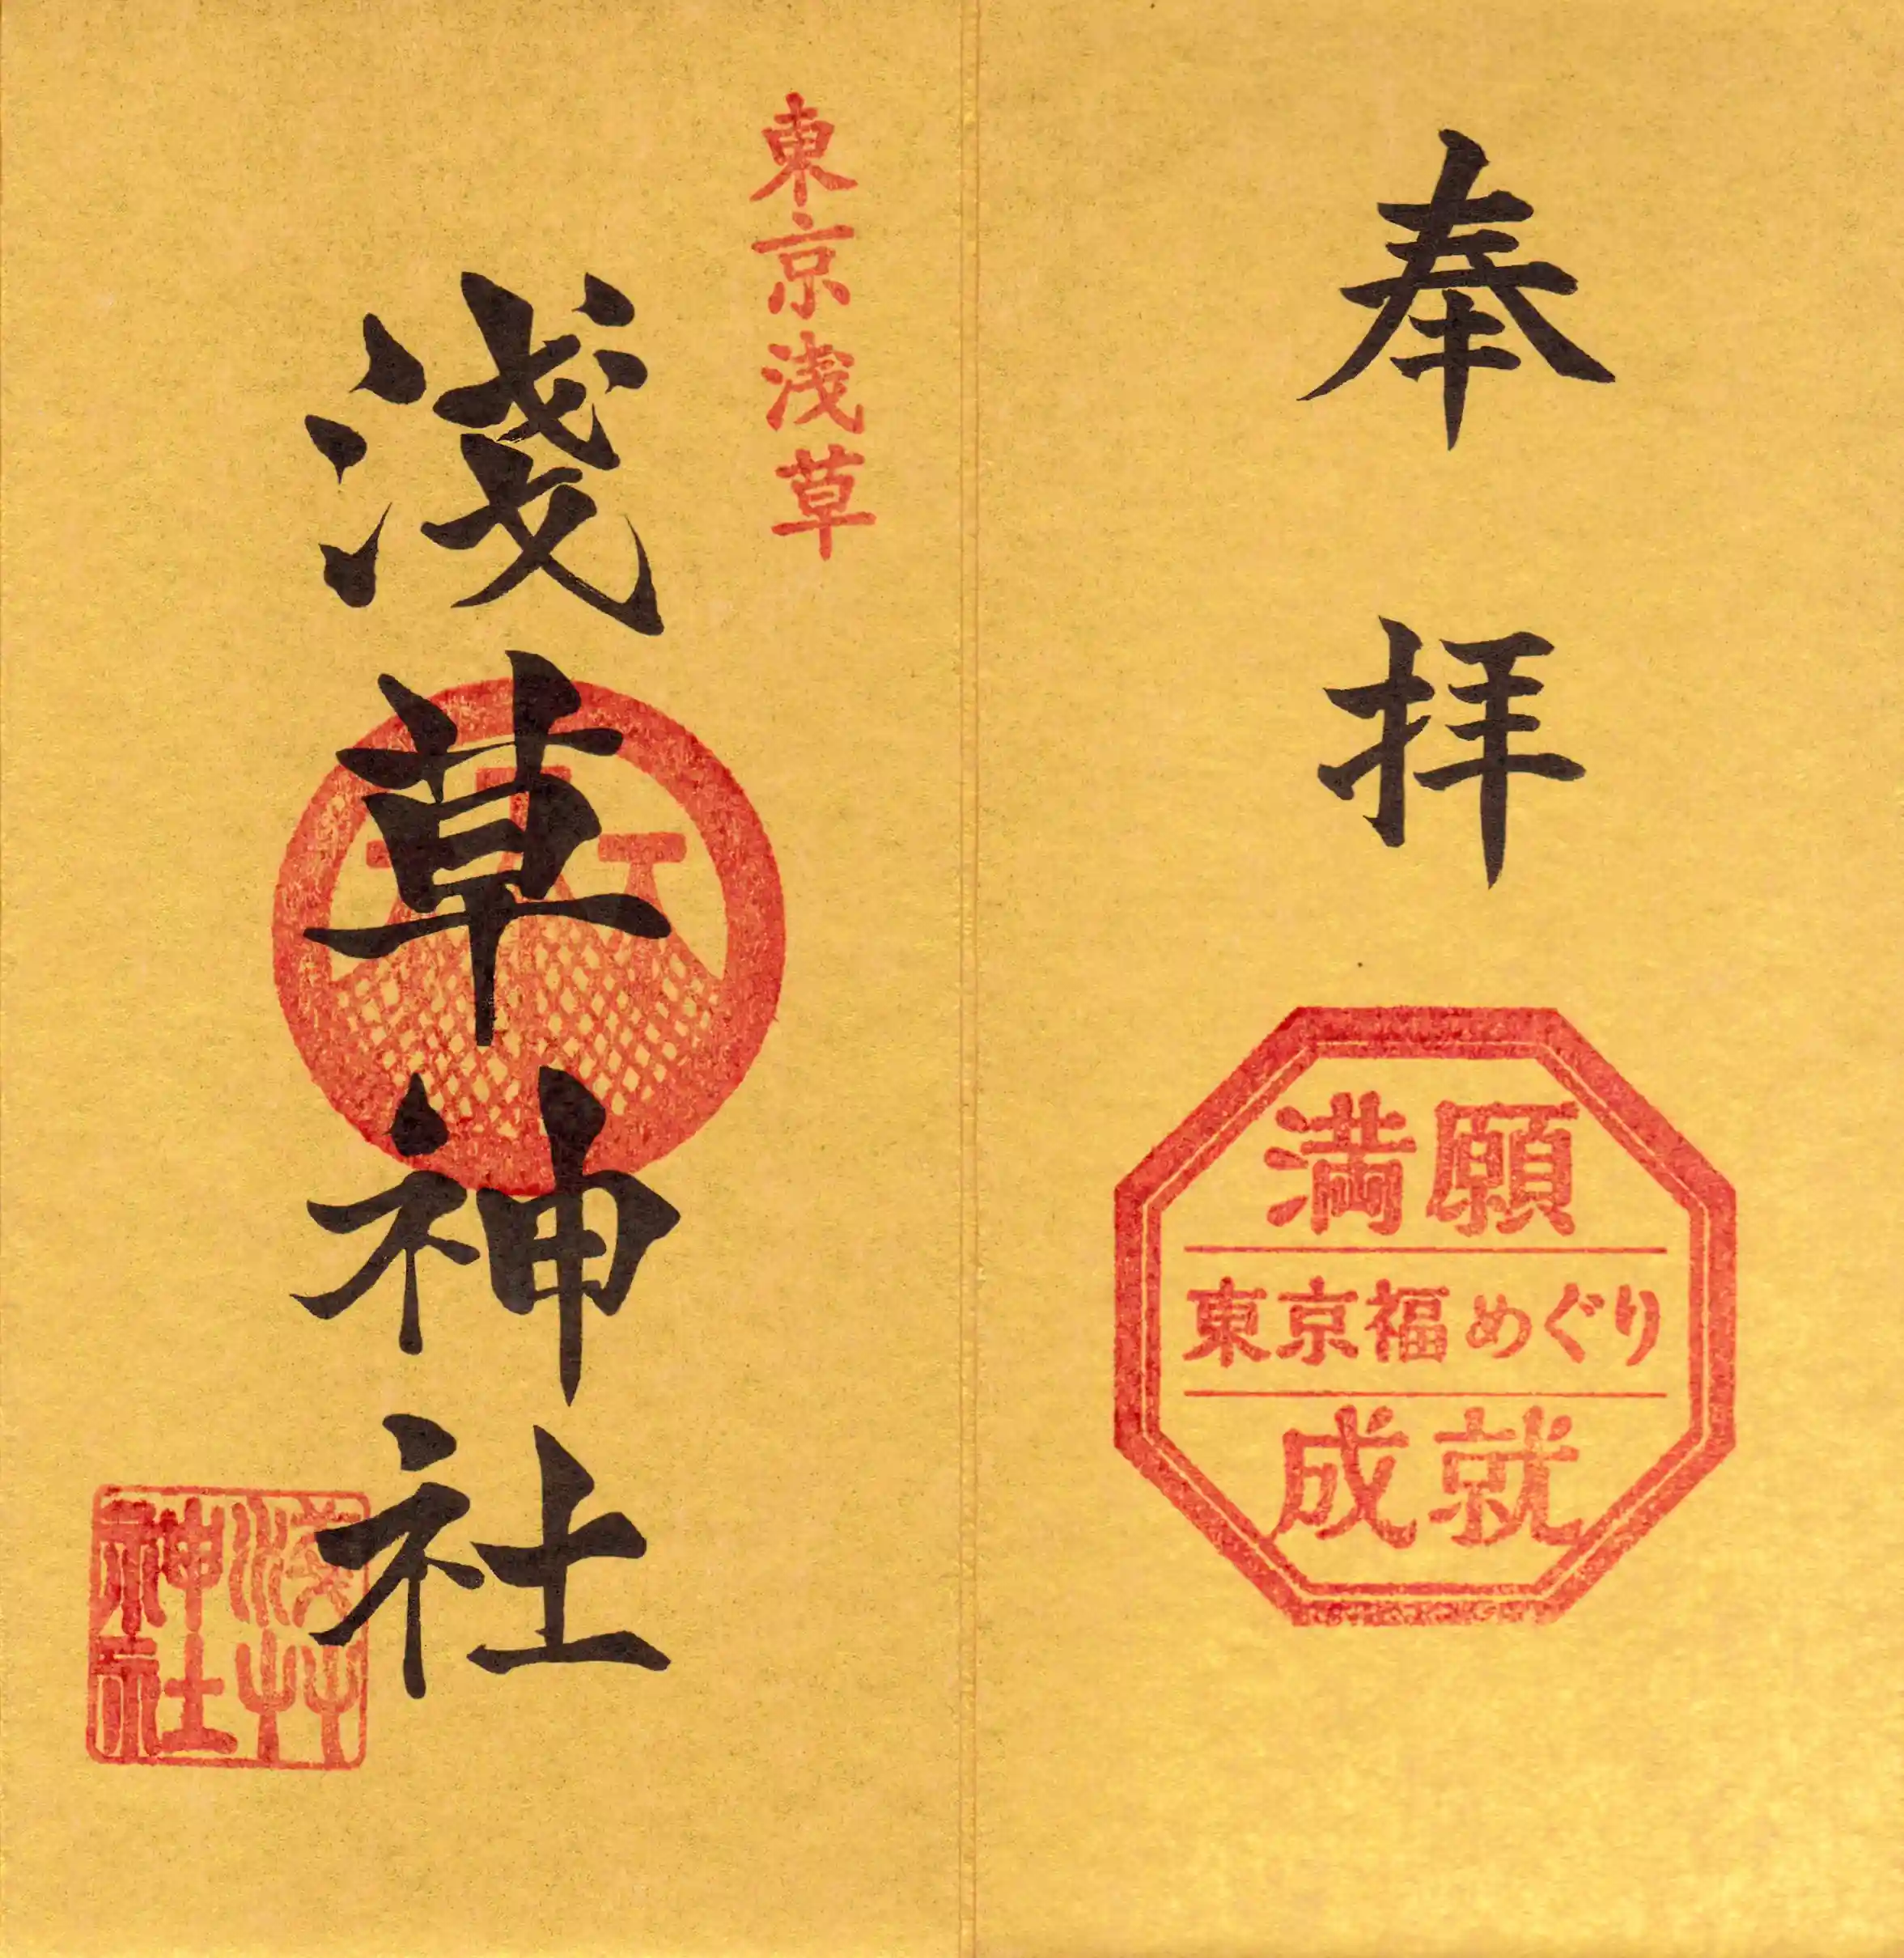 奉拝
満願
東京福めぐり
成就
東京浅草
淺草神社
淺艸
神社